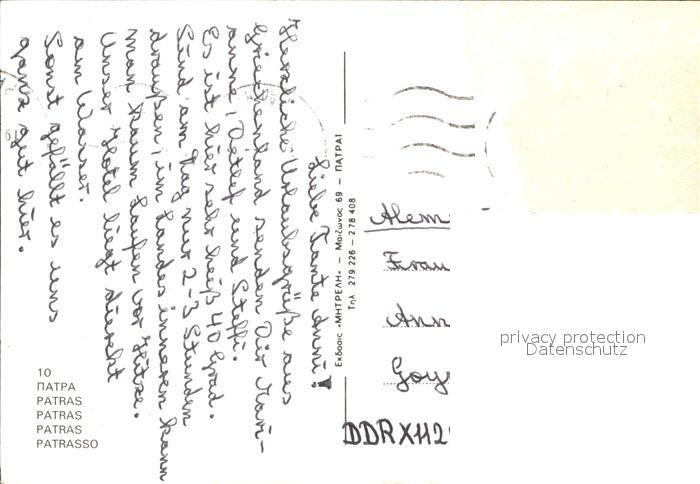 Liebe Tante Anni!
Herzliche Urlaubsgrüße aus
Griechenland senden Dir Mari-
anne, Detlef und Steffi.
Es ist hier sehr heiß 40 Grad.
Sind am Tag nur 2-3 Stunden
draußen, im Landesinneren kann
man kaum laufen vor Hitze.
Unser Hotel liegt direckt
am Wasser.
Sonst gefällt es uns
ganz gut hier.
10
ΠΑΤΡΑ
PATRAS
PATRAS
PATRAS
PATRASSO
Εκδοσις «ΜΗΤΡΕΛΗ» – Μαιζωνος 69 – ΠΑΤΡΑΙ
Τηλ. 279.226 – 278.408
Alem
Frau
Ann
Goy
DDR X112
privacy protection
Datenschutz